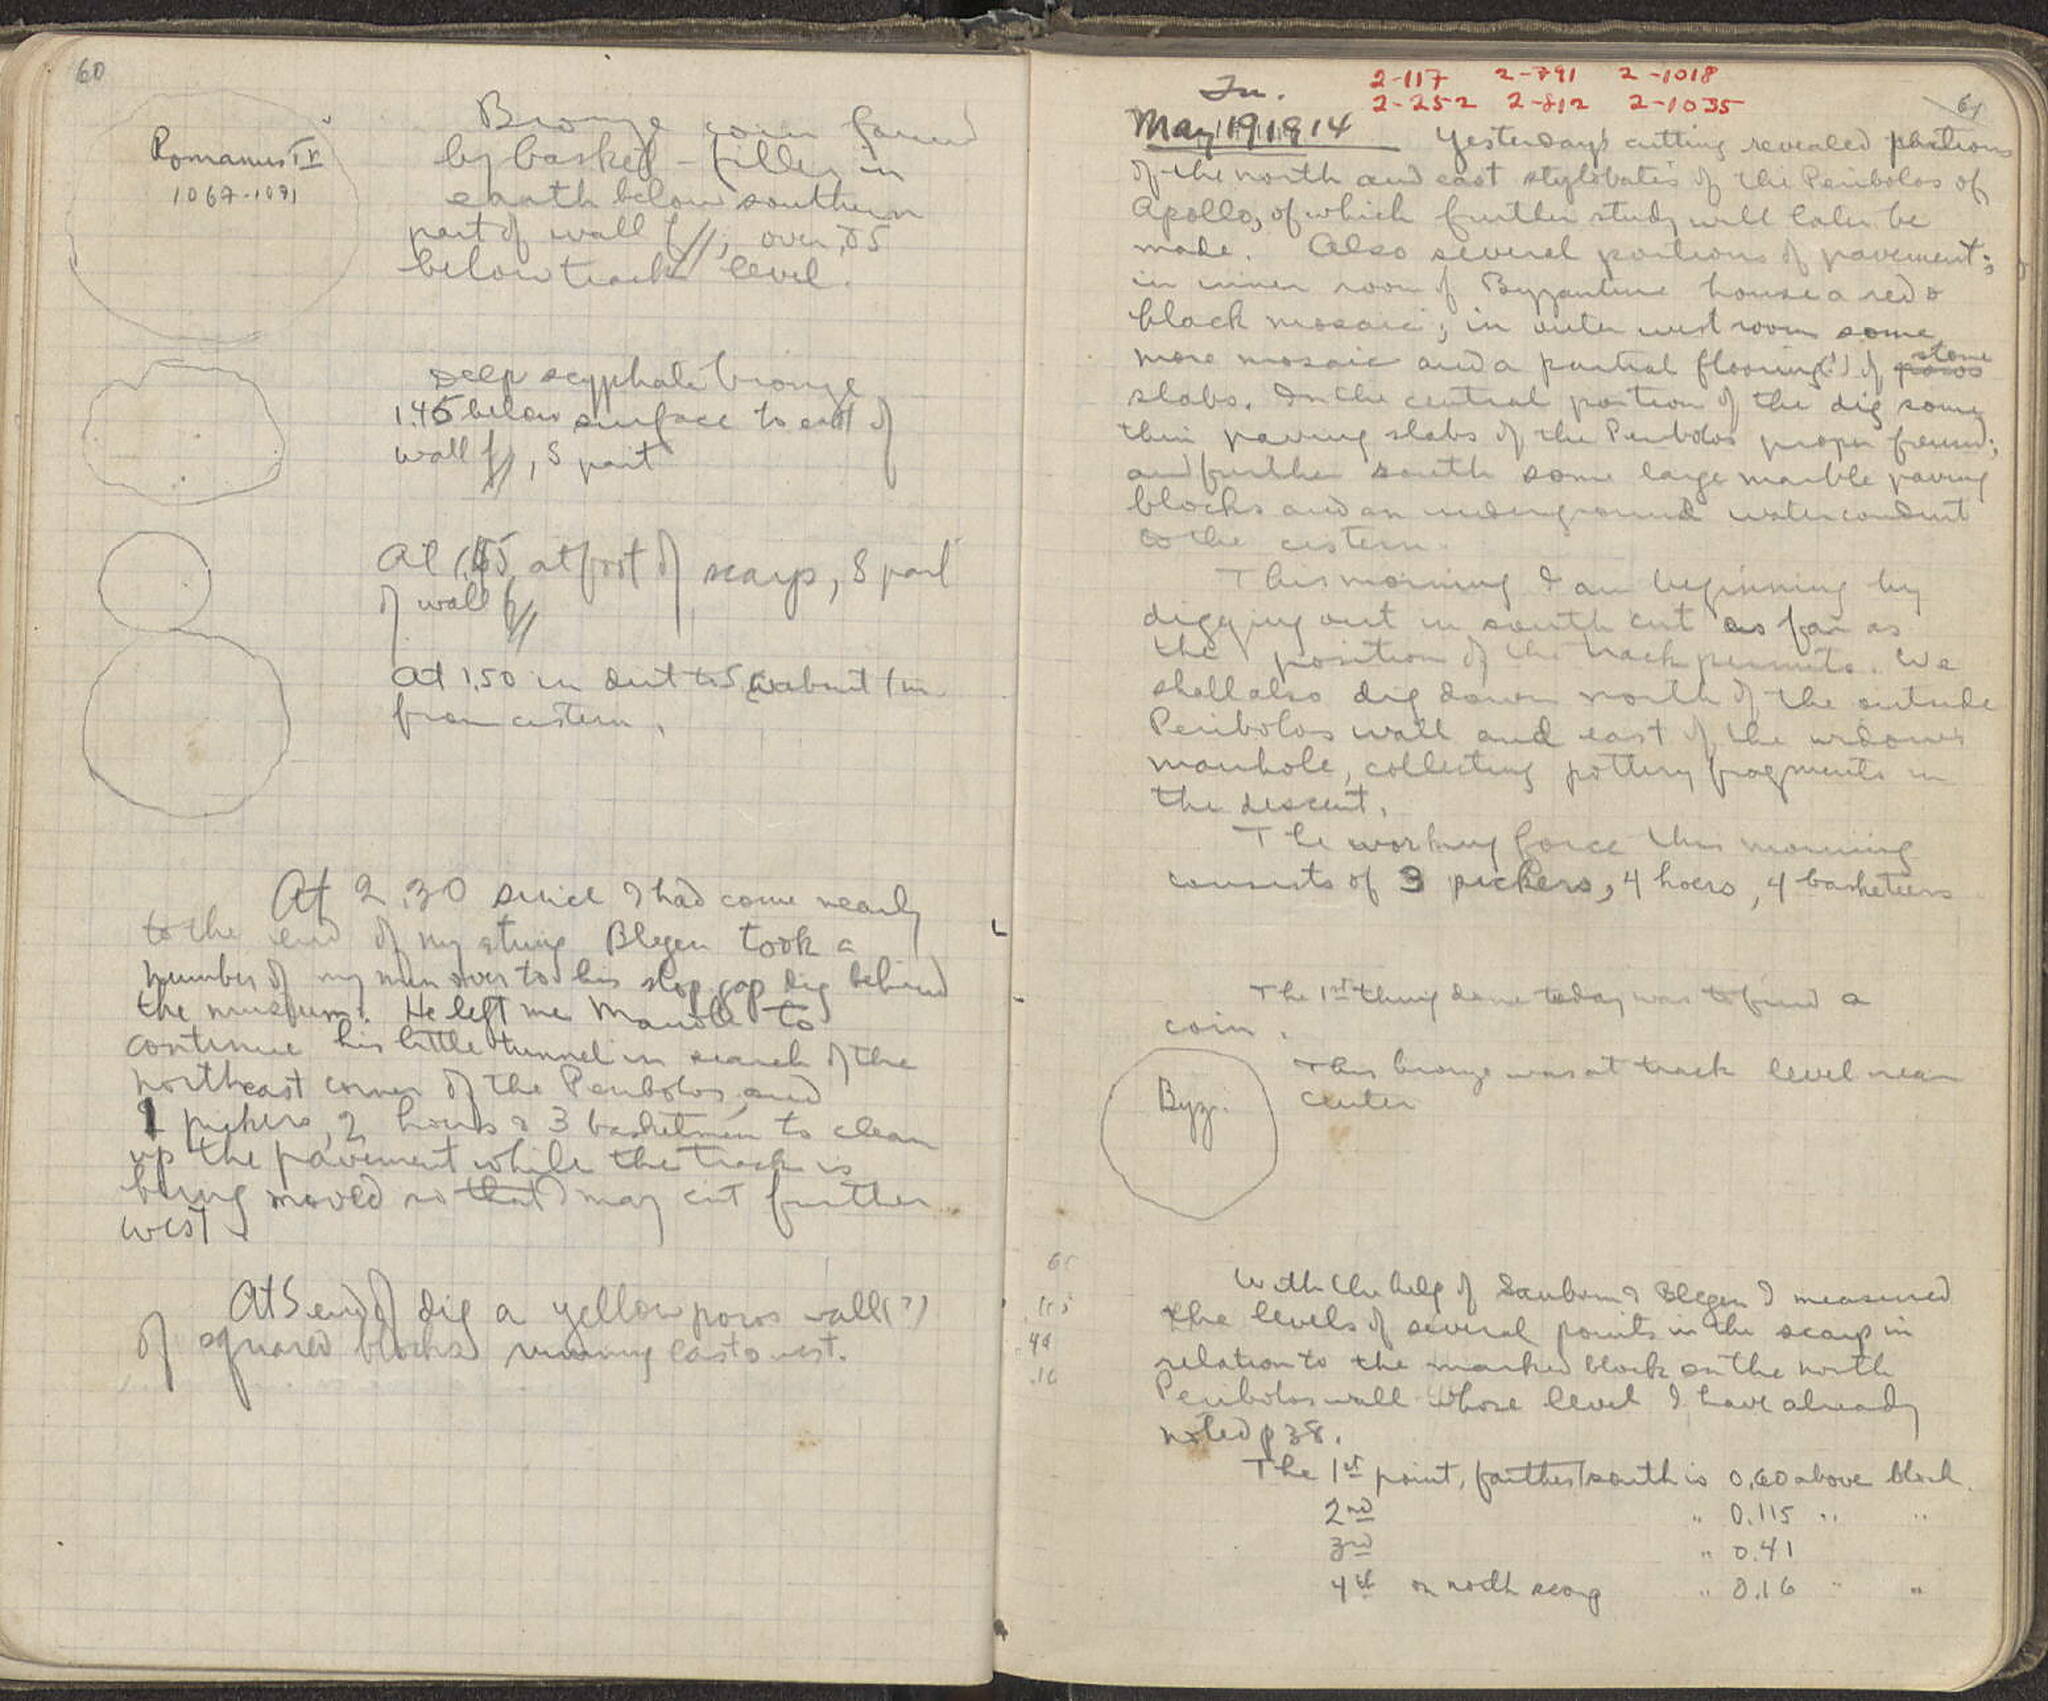 60
Romanus IV
1067-1071
Bronze coin found
by basket-filler in
earth below southern
part of wall ff, over .85
below track level.
Deep scyphate bronze
1.45 below surface to east of
wall ff, S part
At 1.45, at foot of scarp, S part
of wall ff
At 1.50 in dirt to S about 1 m
from cistern.
At 2.30 since I had come nearly
to the end of my string Blegen took a
number of my men over to his stop gap dig behind
the museum. He left me Manoli to
continue his little tunnel in search of the
northeast corner of the Peribolos, and
1 pickers, 2 hoers & 3 basketmen to clean
up the pavement while the track is
being moved so that I may cut further
west.
At S end of dig a yellow poros wall(?)
of squared blocks running east & west.
Tu.
2-117 2-791 2-1018
2-252 2-812 2-1035
61
May 19, 1914 Yesterday's cutting revealed portions
of the north and east stylobates of the Peribolos of
Apollo, of which further study will later be
made. Also several portions of pavement;
in inner room of Byzantine house a red &
black mosaic; in outer west room some
more mosaic and a partial flooring(?) of poros stone
slabs. In the central portion of the dig some
thin paving slabs of the Peribolos proper found;
and further south some large marble paving
blocks and an underground water conduit
to the cistern.
This morning I am beginning by
digging out in south cut as far as
the position of the track permits. We
shall also dig down north of the outside
Peribolos wall and east of the widow's
manhole, collecting pottery fragments in
the descent.
The working force this morning
consists of 3 pickers, 4 hoers, 4 basketeers
The 1st thing done today was to find a
coin.
Byz.
This bronze was at track level near
center
With the help of Sanborn & Blegen I measured
the levels of several points in the scarp in
relation to the marked block on the north
Peribolos wall whose level I have already
noted p 38.
The 1st point, farthest south is 0.60 above block.
2nd " 0.115 " "
3rd " 0.41
4th on north scarp " 0.16 " "